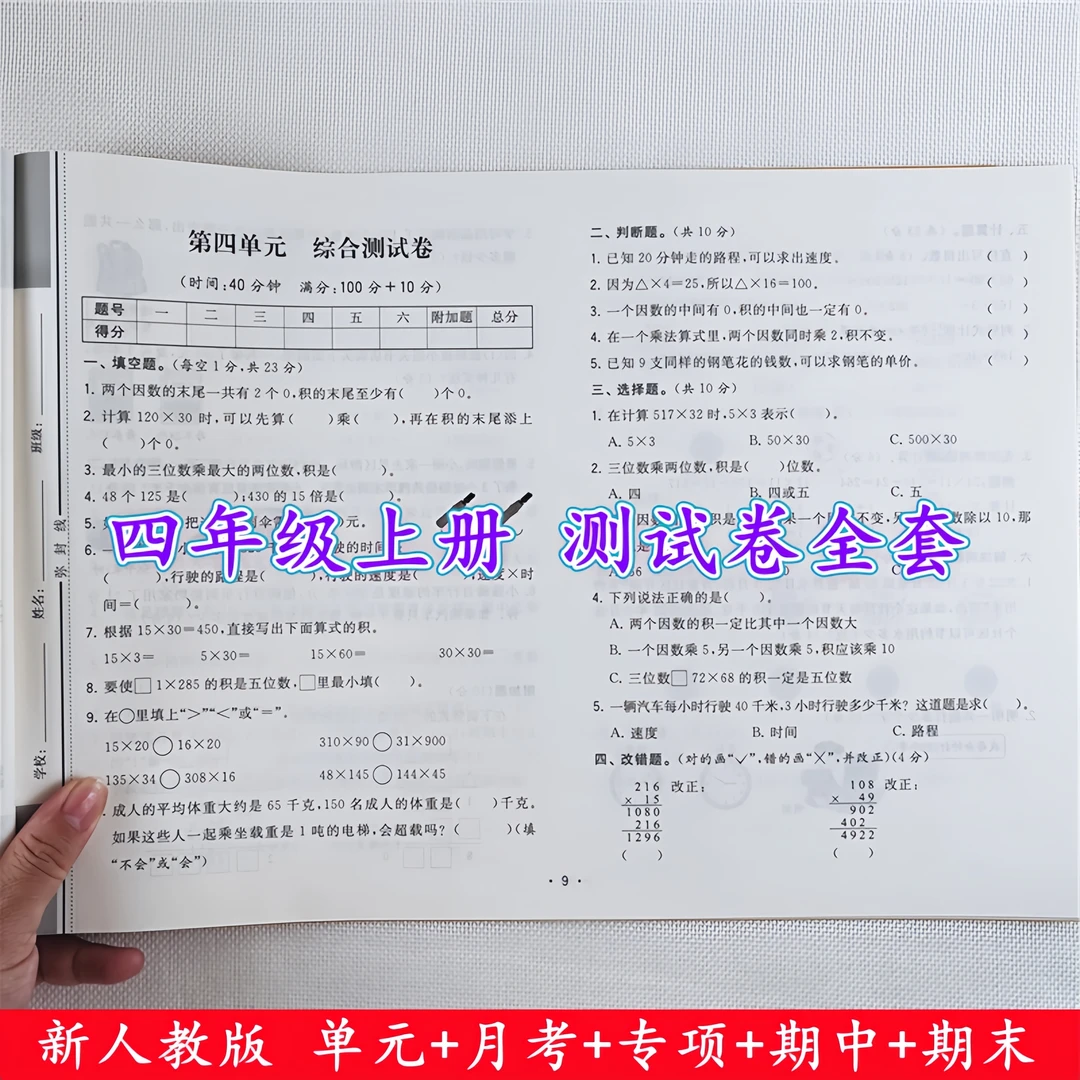 第四单元 综合测试卷
(时间:40分钟 满分:100分+10分)
题号 一 二 三 四 五 六 附加题 总分
得分
一、填空题。(每空1分,共23分)
1. 两个因数的末尾一共有2个0,积的末尾至少有( )个0。
2. 计算120×30时,可以先算( )乘( ),再在积的末尾添上
( )个0。
3. 最小的三位数乘最大的两位数,积是( )。
4. 48个125是( );430的15倍是( )。
5.
元。
6. 一
( ),行驶的路程是( ),行驶的速度是( ),速度×时
间=( )。
7. 根据15×30=450,直接写出下面算式的积。
15×3= 5×30= 15×60= 30×30=
8. 要使□1×285的积是五位数,□里最小填( )。
9. 在○里填上“>”“<”或“=”。
15×20○16×20 310×90○31×900
135×34○308×16 48×145○144×45
成人的平均体重大约是65千克,150名成人的体重是( )千克。
如果这些人一起乘坐载重是1吨的电梯,会超载吗?( )(填
“不会”或“会”)
班级:
姓名:
学校:
弥 封 线
二、判断题。(共10分)
1. 已知20分钟走的路程,可以求出速度。 ( )
2. 因为△×4=25,所以△×16=100。 ( )
3. 一个因数的中间有0,积的中间也一定有0。 ( )
4. 在一个乘法算式里,两个因数同时乘2,积不变。 ( )
5. 已知9支同样的钢笔花的钱数,可以求钢笔的单价。 ( )
三、选择题。(共10分)
1. 在计算517×32时,5×3表示( )。
A. 5×3 B. 50×30 C. 500×30
2. 三位数乘两位数,积是( )位数。
A. 四 B. 四或五 C. 五
数除以10,那
4. 下列说法正确的是( )。
A. 两个因数的积一定比其中一个因数大
B. 一个因数乘5,另一个因数乘5,积应该乘10
C. 三位数□72×68的积一定是五位数
5. 一辆汽车每小时行驶40千米,3小时行驶多少千米?这道题是求( )。
A. 速度 B. 时间 C. 路程
四、改错题。(对的画“✓”,错的画“×”,并改正)(4分)
216 改正: 108 改正:
× 15 × 49
1080 902
216 402
1296 4922
( ) ( )
· 9 ·
四年级上册 测试卷全套
新人教版 单元+月考+专项+期中+期末